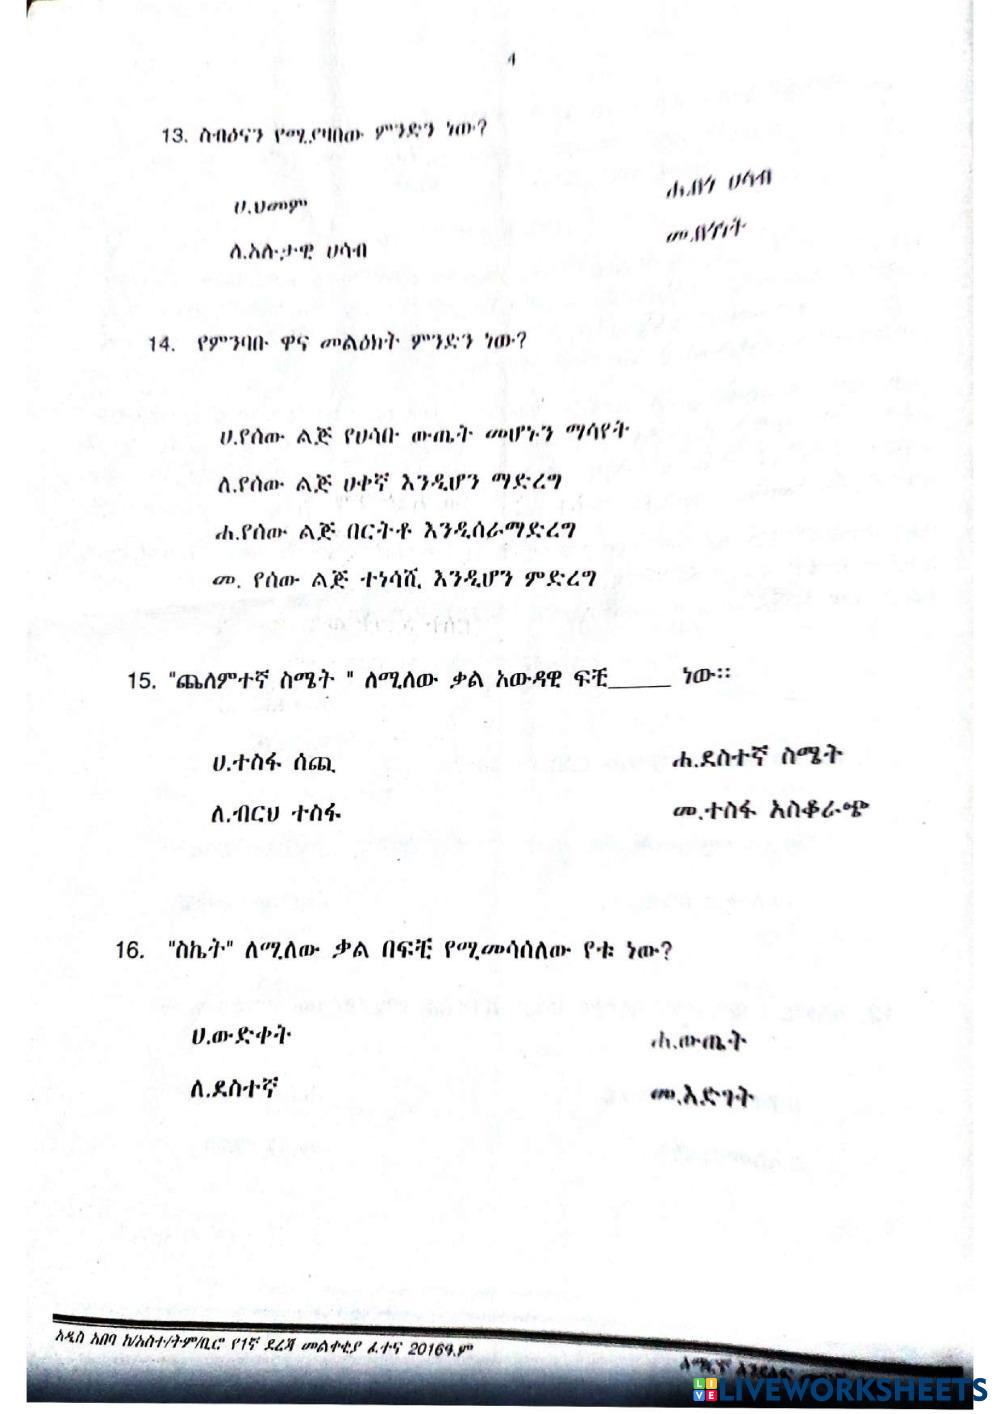 4
13. ስብዕናን የሚያዛበው ምንድን ነው?
ሀ.ህመም
ሐ.በጎ ሀሳብ
ለ.አሉታዊ ሀሳብ
መ.በጎነት
14. የምንባቡ ዋና መልዕክት ምንድን ነው?
ሀ.የሰው ልጅ የሀሳቡ ውጤት መሆኑን ማሳየት
ለ.የሰው ልጅ ሀቀኛ እንዲሆን ማድረግ
ሐ.የሰው ልጅ በርትቶ እንዲሰራማድረግ
መ. የሰው ልጅ ተነሳሽ እንዲሆን ምድረግ
15. "ጨለምተኛ ስሜት " ለሚለው ቃል አውዳዊ ፍቺ______ ነው።
ሀ.ተስፋ ሰጪ
ሐ.ደስተኛ ስሜት
ለ.ብርህ ተስፋ
መ.ተስፋ አስቆራጭ
16. "ስኬት" ለሚለው ቃል በፍቺ የሚመሳሰለው የቱ ነው?
ሀ.ውድቀት
ሐ.ውጤት
ለ.ደስተኛ
መ.እድገት
አዲስ አበባ ከ/አስተ/ትም/ቢሮ የ1ኛ ደረጃ መልቀቂያ ፈተና 2016ዓ.ም
LIVEWORKSHEETS